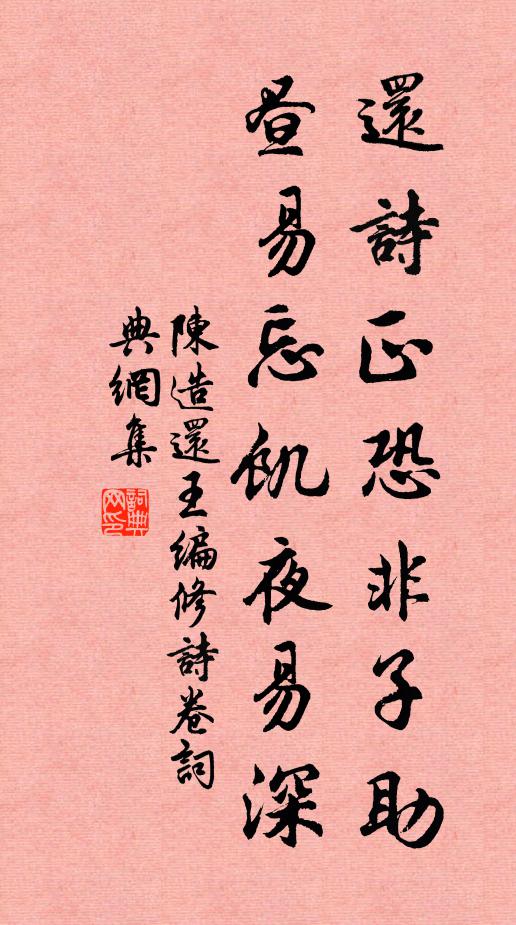 還詩正恐非子助
晝易忘飢夜易深
陳造還王編修詩卷詞
典網集
詞典網印